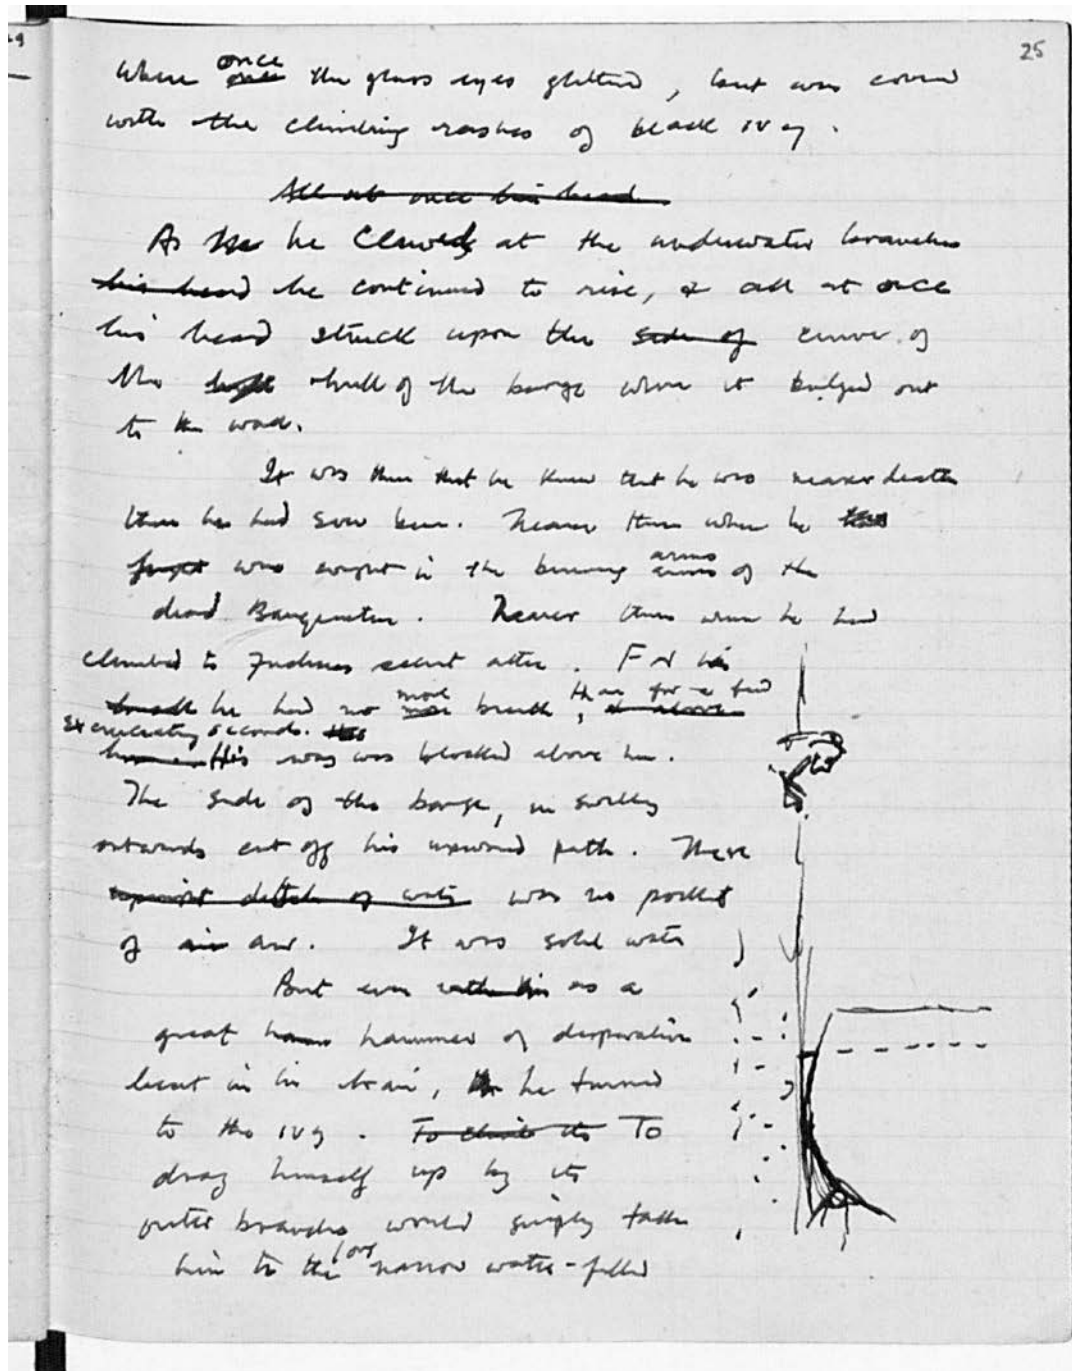 25
where once once the glass eyes glittered, but was covered
with the climbing rashes of black ivy.
All at once his head
As he clawed at the underwater branches
his head he continued to rise, & all at once
his head struck upon the side of curve of
the hull of the barge where it bulged out
to the wall.
It was then that he knew that he was nearer death
than he had ever been. Nearer than when he
was caught in the burning arms arms of the
dead Barquentine. Nearer than when he had
climbed to Fuchsia's secret attic. For his
breath he had no more more breath, than for a few
excruciating seconds.
His way was blocked above him.
The side of the barge, in swelling
outwards cut off his upward path. There
of water was no pocket
of air air. It was solid water
But even with this as a
great hammer of desperation
beat in his brain, he turned
to the ivy. To climb its To
drag himself up by its
outer branches would simply take
him to the long narrow water-filled